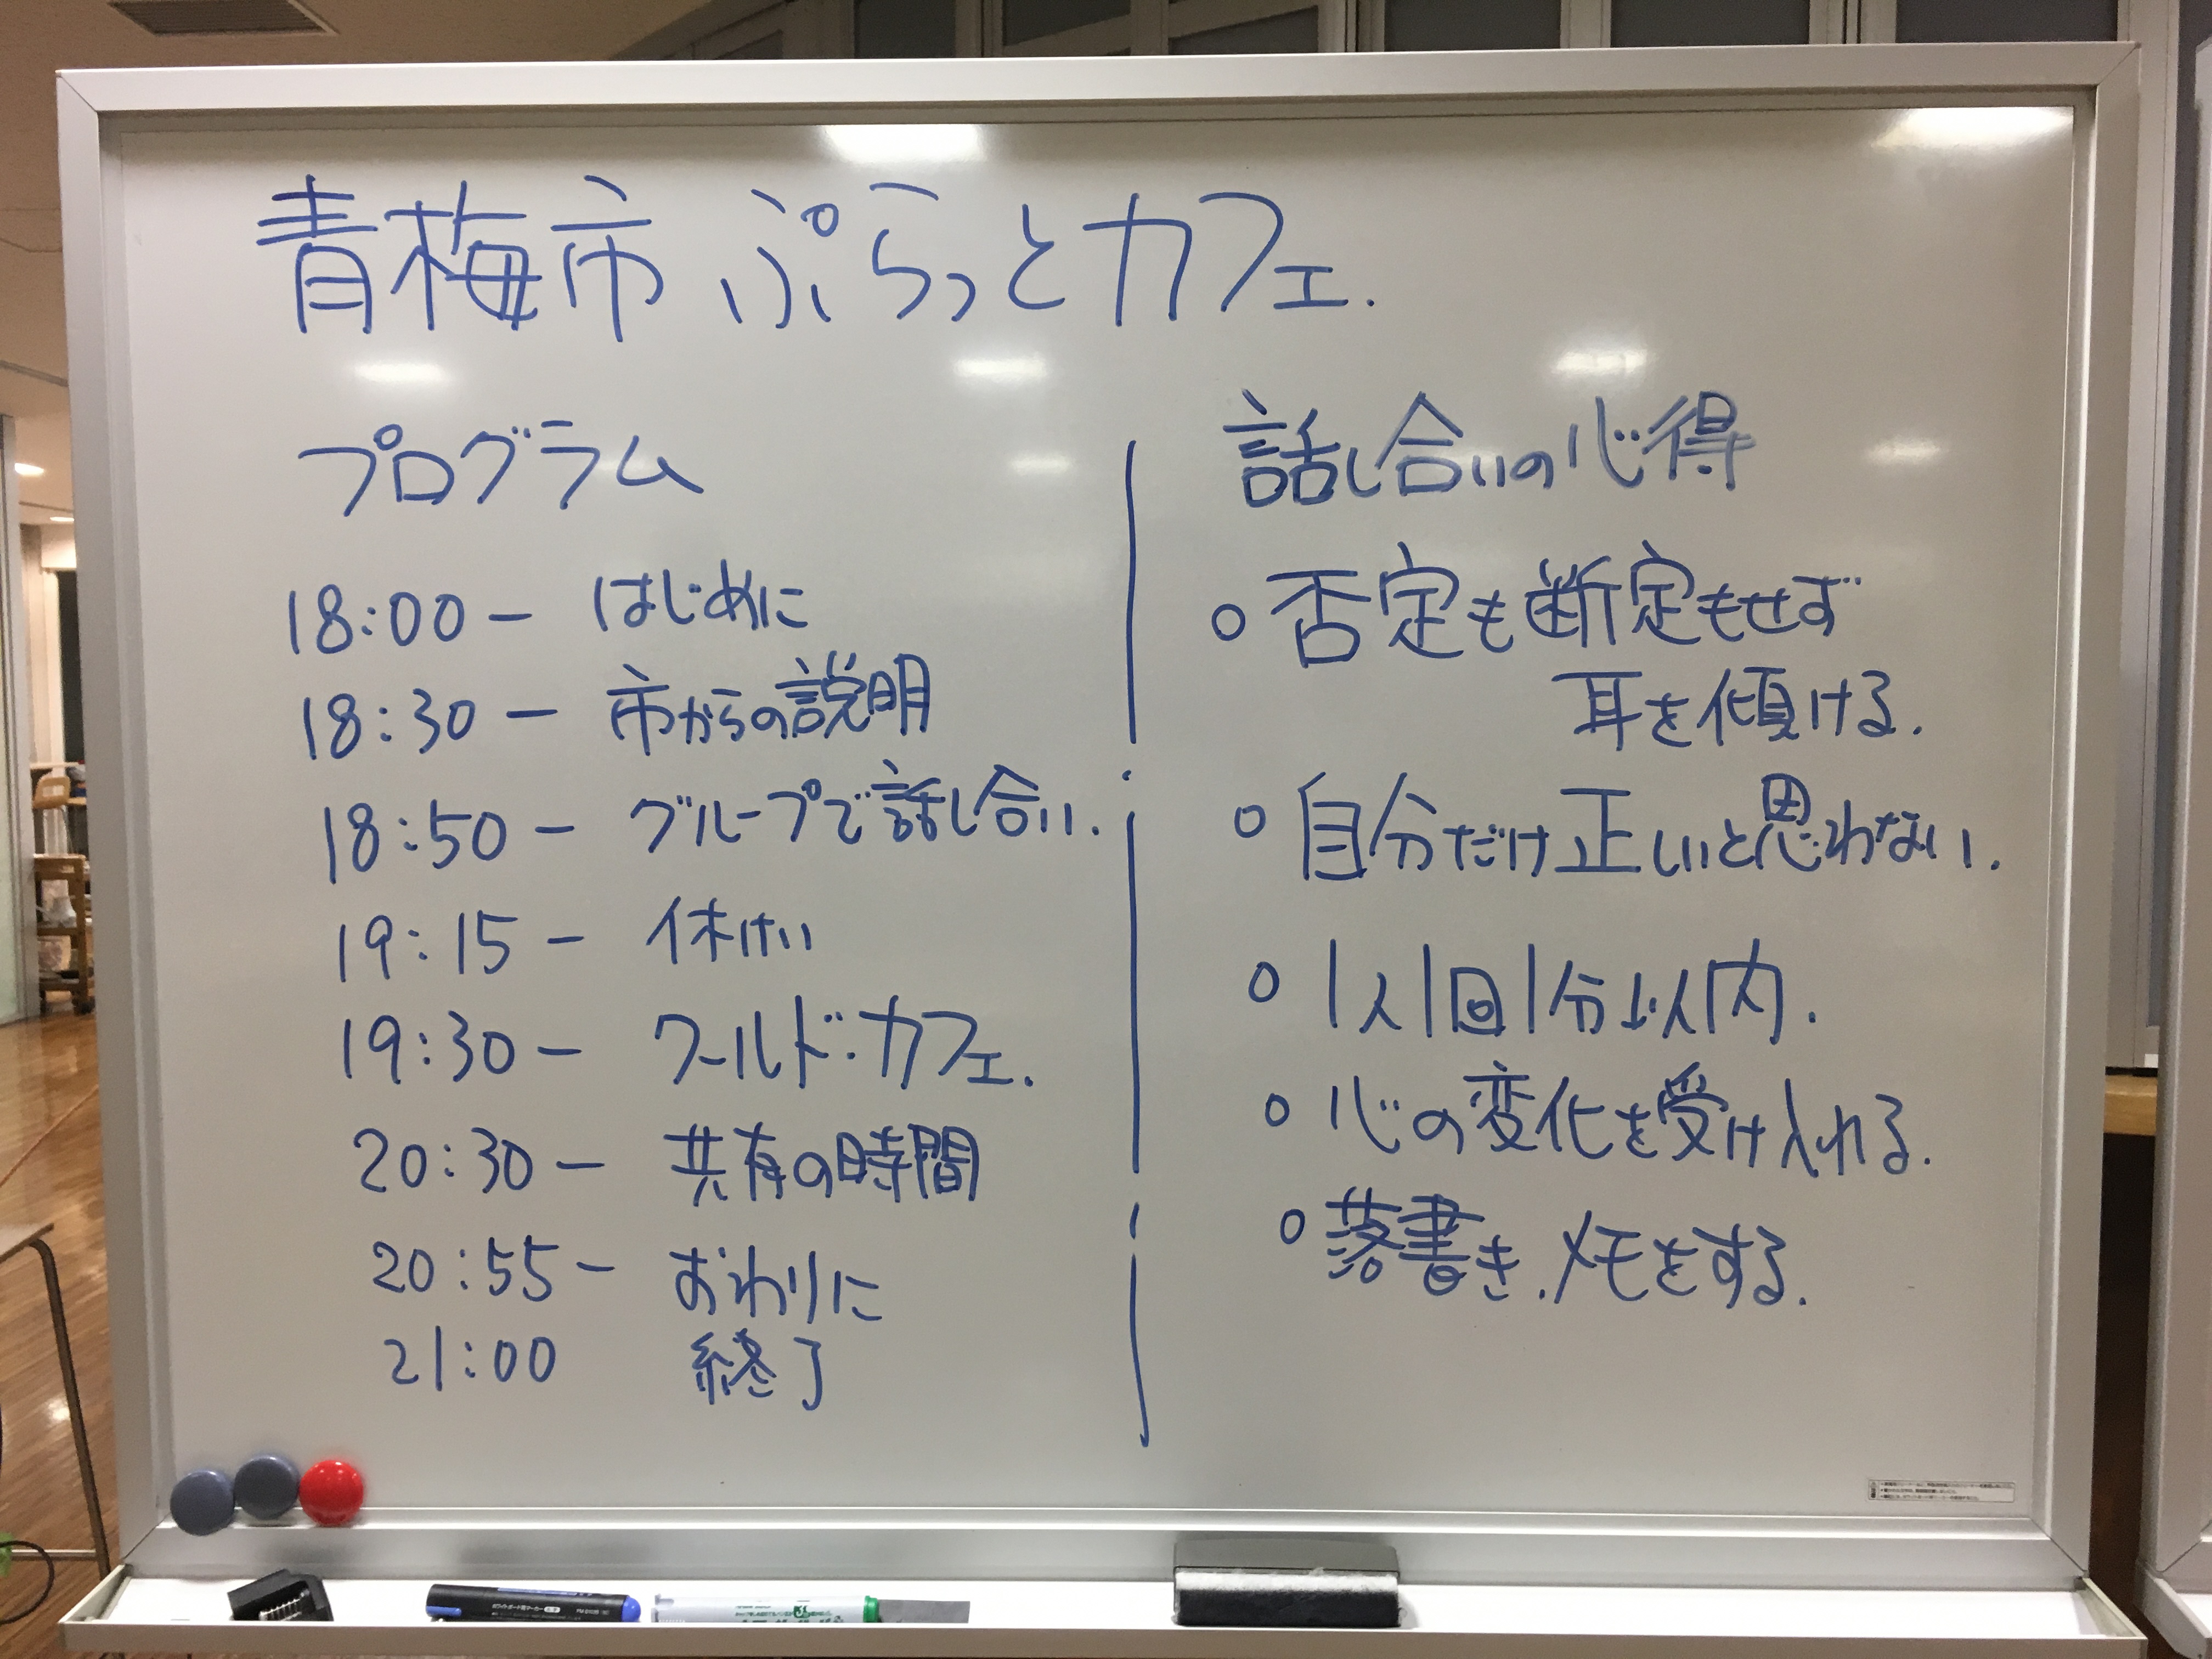 青梅市 ぷらっとカフェ.
プログラム
18:00 ー はじめに
18:30 ー 市からの説明
18:50 ー グループで話し合い.
19:15 ー 休けい
19:30 ー ワールド・カフェ.
20:30 ー 共有の時間
20:55 ー おわりに
21:00 終了
話し合いの心得
○ 否定も断定もせず
耳を傾ける.
○ 自分だけ正しいと思わない.
○ 1人1回1分以内.
○ 心の変化を受け入れる.
○ 落書き.メモをする.